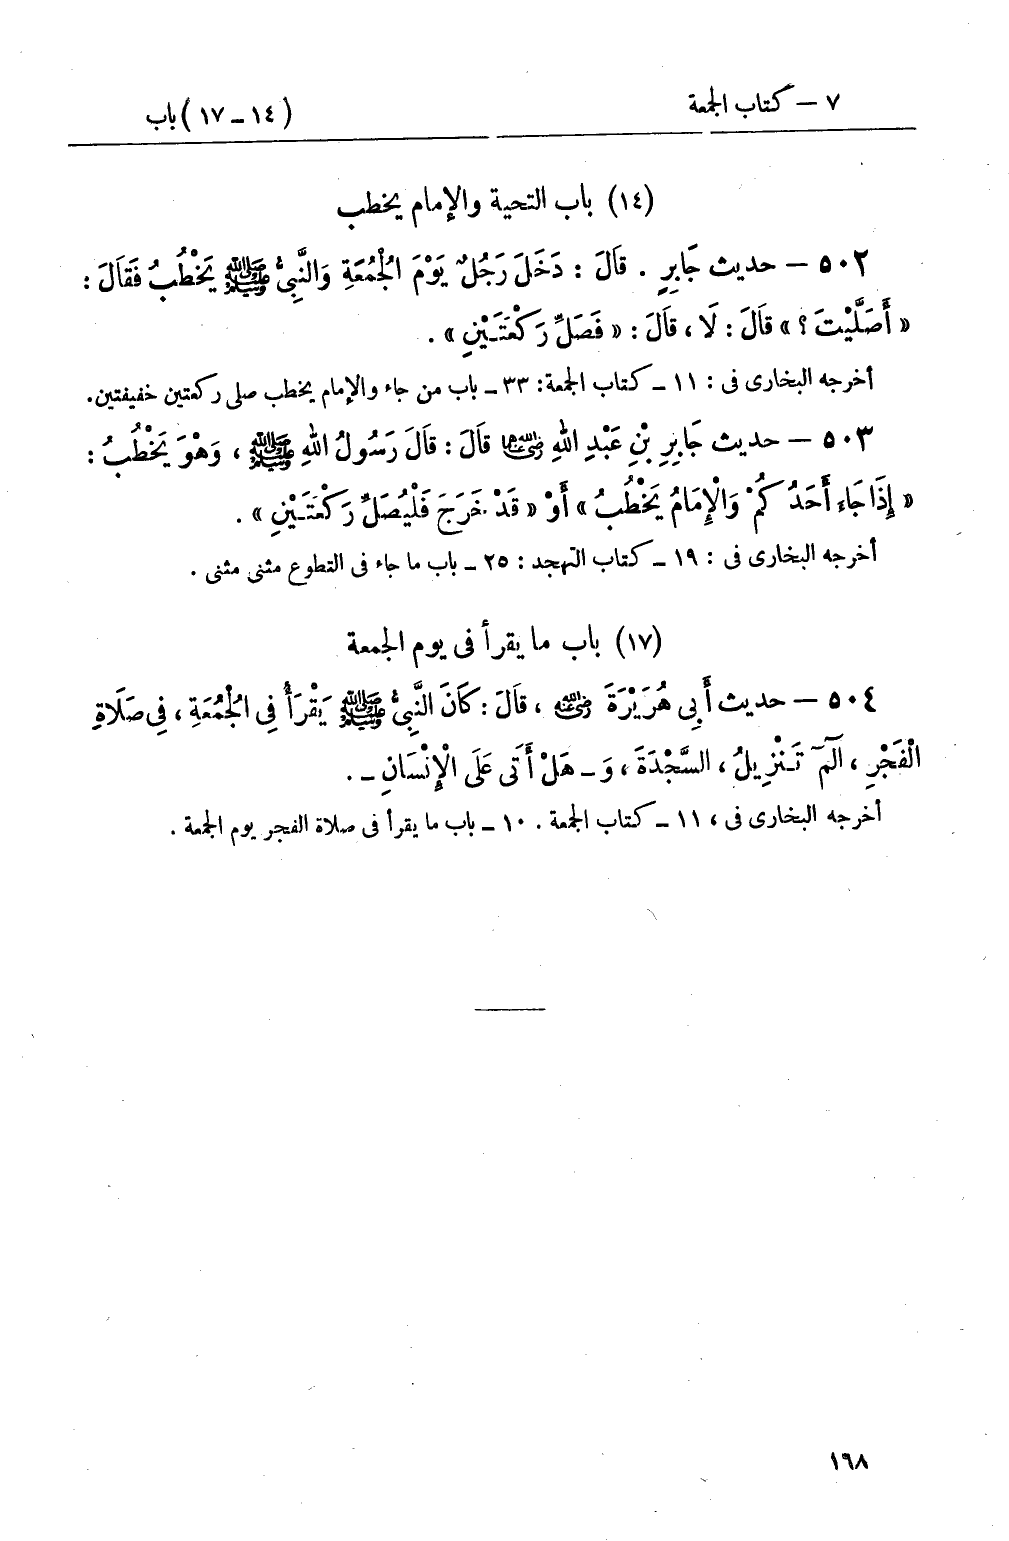 ٧ – كتاب الجمعة
(١٤ – ١٧) باب
(١٤) باب التحية والإمام يخطب
٥٠٢ – حديث جَابِرٍ . قَالَ : دَخَلَ رَجُلٌ يَوْمَ الْجُمُعَةِ وَالنَّبِيُّ ﷺ يَخْطُبُ فَقَالَ :
« أَصَلَّيْتَ ؟ » قَالَ : لَا ، قَالَ : « فَصَلِّ رَكْعَتَيْنِ » .
أخرجه البخارى فى : ١١ – كتاب الجمعة : ٣٣ – باب من جاء والإمام يخطب صلى ركعتين خفيفتين.
٥٠٣ – حديث جَابِرِ بْنِ عَبْدِ اللهِ رضي الله عنهما قَالَ : قَالَ رَسُولُ اللهِ ﷺ ، وَهُوَ يَخْطُبُ :
« إِذَا جَاءَ أَحَدُكُمْ وَالْإِمَامُ يَخْطُبُ » أَوْ « قَدْ خَرَجَ فَلْيُصَلِّ رَكْعَتَيْنِ » .
أخرجه البخارى فى : ١٩ – كتاب التهجد : ٢٥ – باب ما جاء فى التطوع مثنى مثنى .
(١٧) باب ما يقرأ فى يوم الجمعة
٥٠٤ – حديث أَبِي هُرَيْرَةَ رضي الله عنه ، قَالَ : كَانَ النَّبِيُّ ﷺ يَقْرَأُ فِي الْجُمُعَةِ ، فِي صَلَاةِ
الْفَجْرِ ، الٓمٓ تَنْزِيلُ ، السَّجْدَةَ ، وَ – هَلْ أَتَى عَلَى الْإِنْسَانِ – .
أخرجه البخارى فى ، ١١ – كتاب الجمعة . ١٠ – باب ما يقرأ فى صلاة الفجر يوم الجمعة .
١٦٨